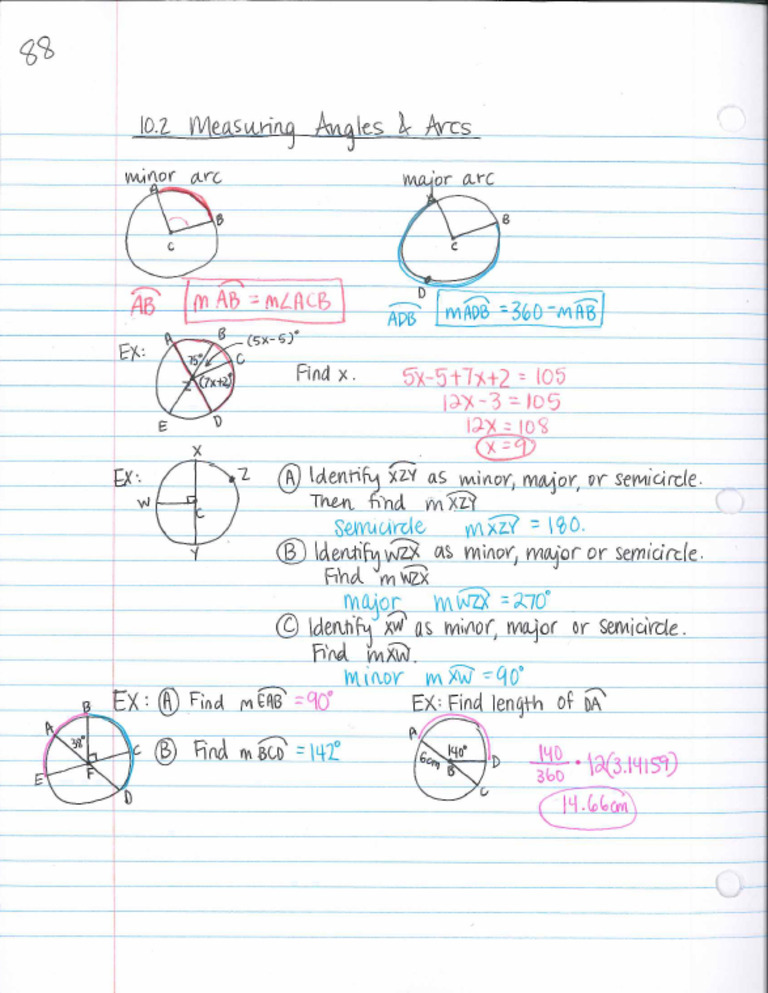 88
10.2 Measuring Angles & Arcs
minor arc
major arc
A
B
C
A
B
C
D
AB
mAB = m∠ACB
ADB
mADB = 360 - mAB
EX:
A
B
(5x-5)°
75°
C
Z
(7x+2)°
E
D
Find x.
5x-5+7x+2 = 105
12x-3 = 105
12x = 108
x = 9
EX:
X
Z
W
C
Y
Ⓐ Identify XZY as minor, major, or semicircle.
Then find mXZY
semicircle mXZY = 180.
Ⓑ Identify WZX as minor, major or semicircle.
Find mWZX
major mWZX = 270°
Ⓒ Identify XW as minor, major or semicircle.
Find mXW.
minor mXW = 90°
EX: Ⓐ Find mEAB = 90°
B
A
38°
C
F
E
D
Ⓑ Find mBCD = 142°
EX: Find length of DA
A
140°
6cm
B
D
C
140/360 • 12(3.14159)
14.66cm